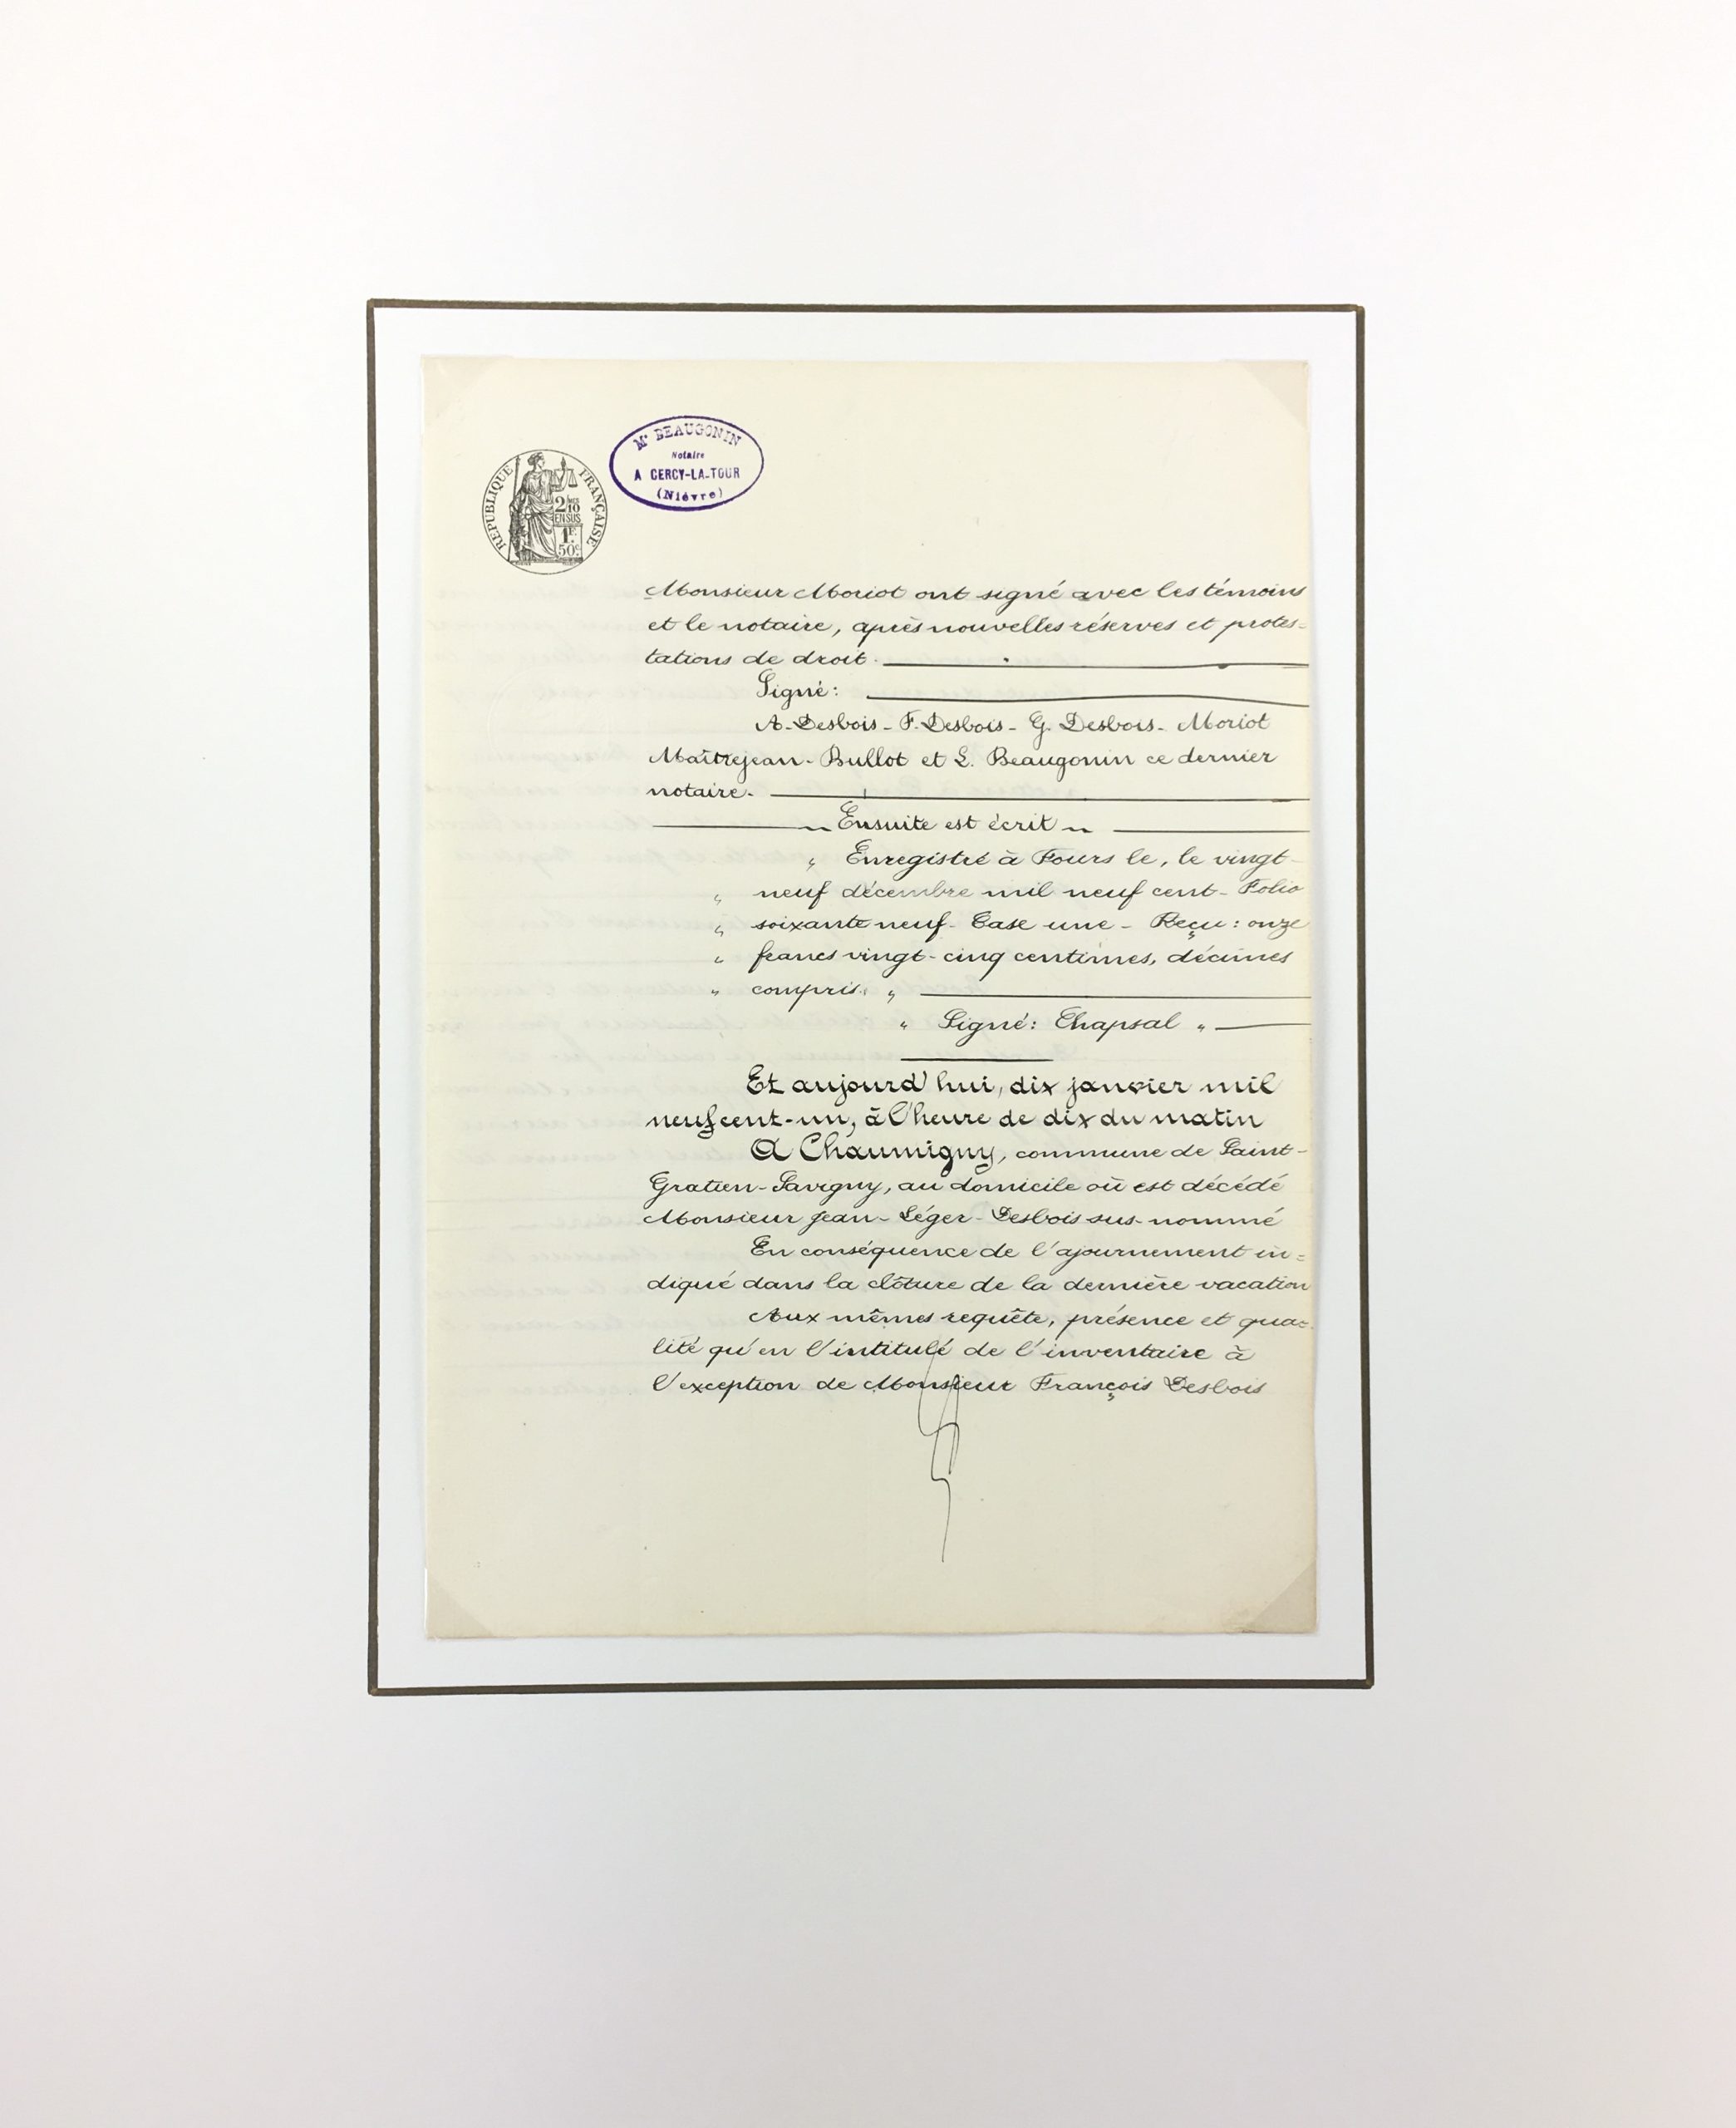 Me BEAUGONIN
Notaire
A CERCY-LA-TOUR
(Nièvre)
RÉPUBLIQUE FRANÇAISE
2/10
EN SUS
1F.
50c.
Monsieur Moriot ont signé avec les témoins
et le notaire, après nouvelles réserves et protes=
tations de droit.
Signé:
A. Desbois - F. Desbois - G. Desbois - Moriot
Maîtrejean - Bullot et L. Beaugonin ce dernier
notaire.
Ensuite est écrit
" Enregistré à Fours le, le vingt-
" neuf décembre mil neuf cent - Folio
" soixante neuf - Case une - Reçu: onze
" francs vingt-cinq centimes, décimes
" compris. "
" Signé: Chapsal "
Et aujourd'hui, dix janvier mil
neuf cent-un, à l'heure de dix du matin
A Chaumigny, commune de Saint-
Gratien-Savigny, au domicile où est décédé
Monsieur Jean-Léger-Desbois sus-nommé
En conséquence de l'ajournement in=
diqué dans la clôture de la dernière vacation
Aux mêmes requête, présence et qua=
lité qu'en l'intitulé de l'inventaire à
l'exception de Monsieur François Desbois